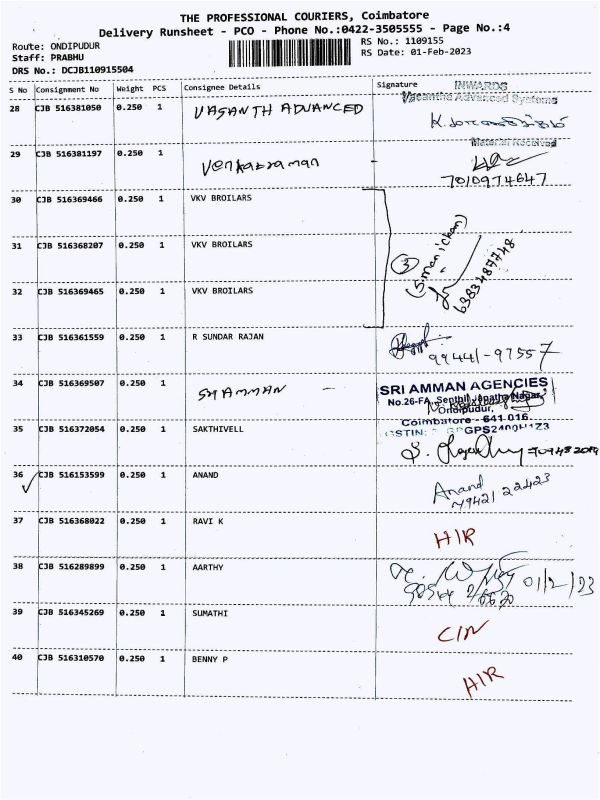 THE PROFESSIONAL COURIERS, Coimbatore
Delivery Runsheet - PCO - Phone No.:0422-3505555 - Page No.:4
Route: ONDIPUDUR
Staff: PRABHU
DRS No.: DCJB110915504
RS No.: 1109155
RS Date: 01-Feb-2023
S No Consignment No Weight PCS Consignee Details Signature
INWARDS
Vasantha Advanced Systems
28 CJB 516381050 0.250 1 VASANTH ADVANCED
Material Received
29 CJB 516381197 0.250 1 Venkatraman
7010974647
30 CJB 516369466 0.250 1 VKV BROILARS
31 CJB 516368207 0.250 1 VKV BROILARS
3 (Smanickam)
6383487748
32 CJB 516369465 0.250 1 VKV BROILARS
33 CJB 516361559 0.250 1 R SUNDAR RAJAN
99441-97557
34 CJB 516369507 0.250 1 SHAMMAN
SRI AMMAN AGENCIES
No.26-FA, Senthil Janatha Nagar,
Ondipudur,
Coimbatore - 641 016.
35 CJB 516372054 0.250 1 SAKTHIVELL
36 CJB 516153599 0.250 1 ANAND
Anand
79421 22423
37 CJB 516368022 0.250 1 RAVI K
HIR
38 CJB 516289899 0.250 1 AARTHY
01/2/23
39 CJB 516345269 0.250 1 SUMATHI
CIN
40 CJB 516310570 0.250 1 BENNY P
HIR